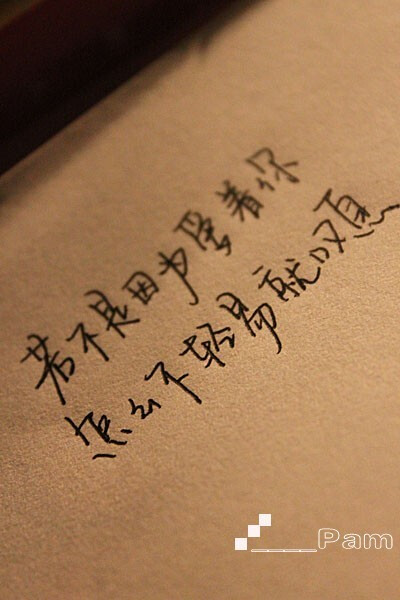 若不是因为爱着你
怎么不轻易就叹息
____Pam